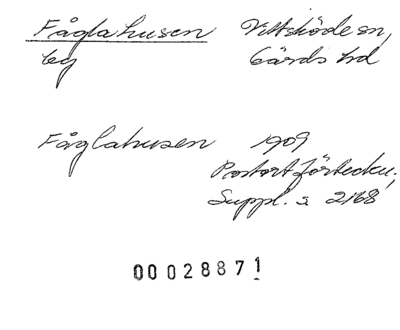 Fåglahusen Vittsköde sn,
by Gärds hd
Fåglahusen 1909
Postort förteckn.,
Suppl. s 2168
00028871